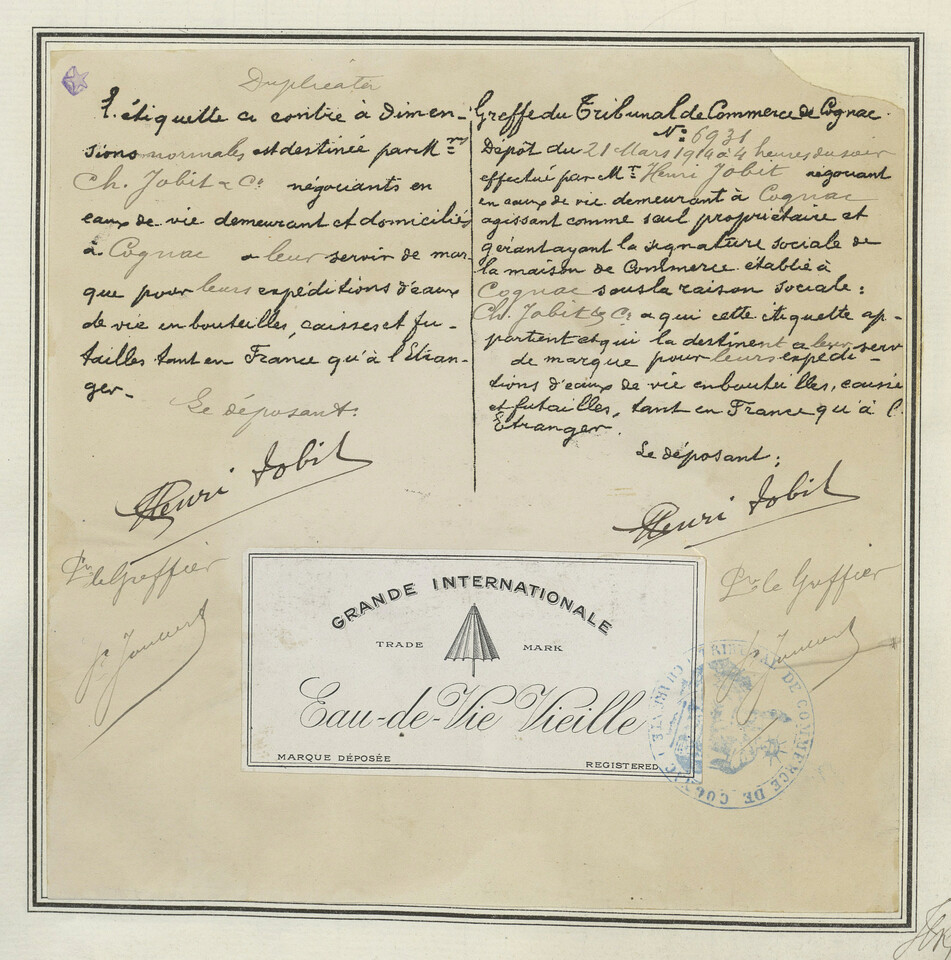 Duplicata
L'étiquette ci contre à dimen-
sions normales est destinée par Mrs
Ch. Jobit & Co négociants en
eaux de vie demeurant et domiciliés
à Cognac a leur servir de mar-
que pour leurs expéditions d'eaux
de vie en bouteilles, caisses et fu-
tailles tant en France qu'à l'Etran-
ger.
Le déposant.
Henri Jobit
Pr le Greffier
Greffe du Tribunal de Commerce de Cognac.
No 6931
Dépôt du 21 Mars 1914 à 4 heures du soir
effectué par Mr Henri Jobit négociant
en eaux de vie demeurant à Cognac
agissant comme seul propriétaire et
gérant ayant la signature sociale de
la maison de Commerce établie à
Cognac sous la raison sociale :
Ch. Jobit & Co a qui cette étiquette ap-
partient et qui la destinent a leur serv
de marque pour leurs expédi-
tions d'eaux de vie en bouteilles, caisse
et futailles, tant en France qu'à l'
Etranger.
Le déposant ;
Henri Jobit
Pr le Greffier
GRANDE INTERNATIONALE
TRADE MARK
Eau-de-Vie Vieille
MARQUE DÉPOSÉE REGISTERED
TRIBUNAL DE COMMERCE DE COGNAC (CHARENTE)